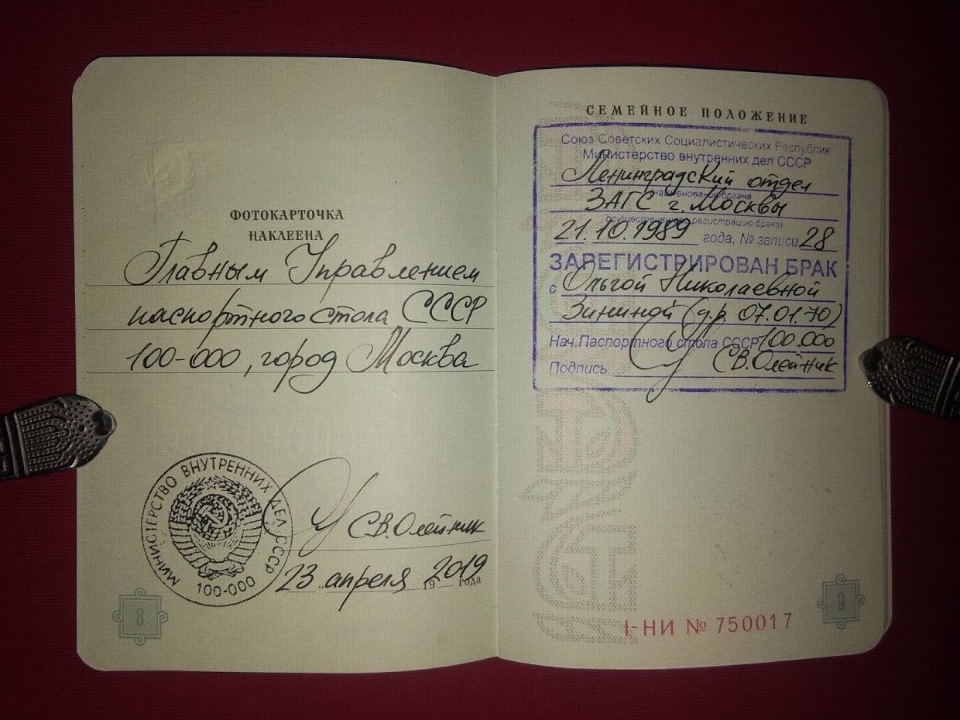 ФОТОКАРТОЧКА
НАКЛЕЕНА
Главным Управлением
паспортного стола СССР
100-000, город Москва
МИНИСТЕРСТВО ВНУТРЕННИХ ДЕЛ СССР
100-000
С.В.Олейник
23 апреля 2019 19 года
8
СЕМЕЙНОЕ ПОЛОЖЕНИЕ
Союз Советских Социалистических Республик
Министерство внутренних дел СССР
Ленинградский отдел
наименование органа
ЗАГС г. Москвы
осуществившего регистрацию брака)
21.10.1989 года, № записи 28
ЗАРЕГИСТРИРОВАН БРАК
с Ольгой Николаевной
Зининой (д.р. 07.01.70)
Нач.Паспортного стола СССР 100.000
С.В.Олейник
Подпись
I-НИ № 750017
9